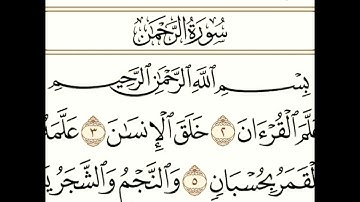 سُورَةُ ٱلرَّحْمَٰن
بِسْمِ ٱللَّهِ ٱلرَّحْمَٰنِ ٱلرَّحِيمِ
عَلَّمَ ٱلْقُرْءَانَ ٢ خَلَقَ ٱلْإِنسَٰنَ ٣ عَلَّمَهُ
ٱلْقَمَرُ بِحُسْبَانٍ ٥ وَٱلنَّجْمُ وَٱلشَّجَرُ يَ